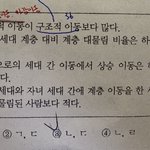 적 이동이 구조적 이동보다 많다.
세대 계층 대비 계층 대물림 비율은 하
으로의 세대 간 이동에서 상승 이동은 하
다.
세대와 자녀 세대 간에 계층 이동을 한 사
물림된 사람보다 적다.
② ㄱ, ㄷ ③ ㄴ, ㄷ ④ ㄴ, ㄹ